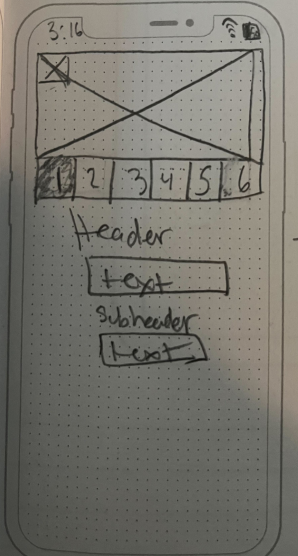 3:16
1 2 3 4 5 6
Header
text
Subheader
text